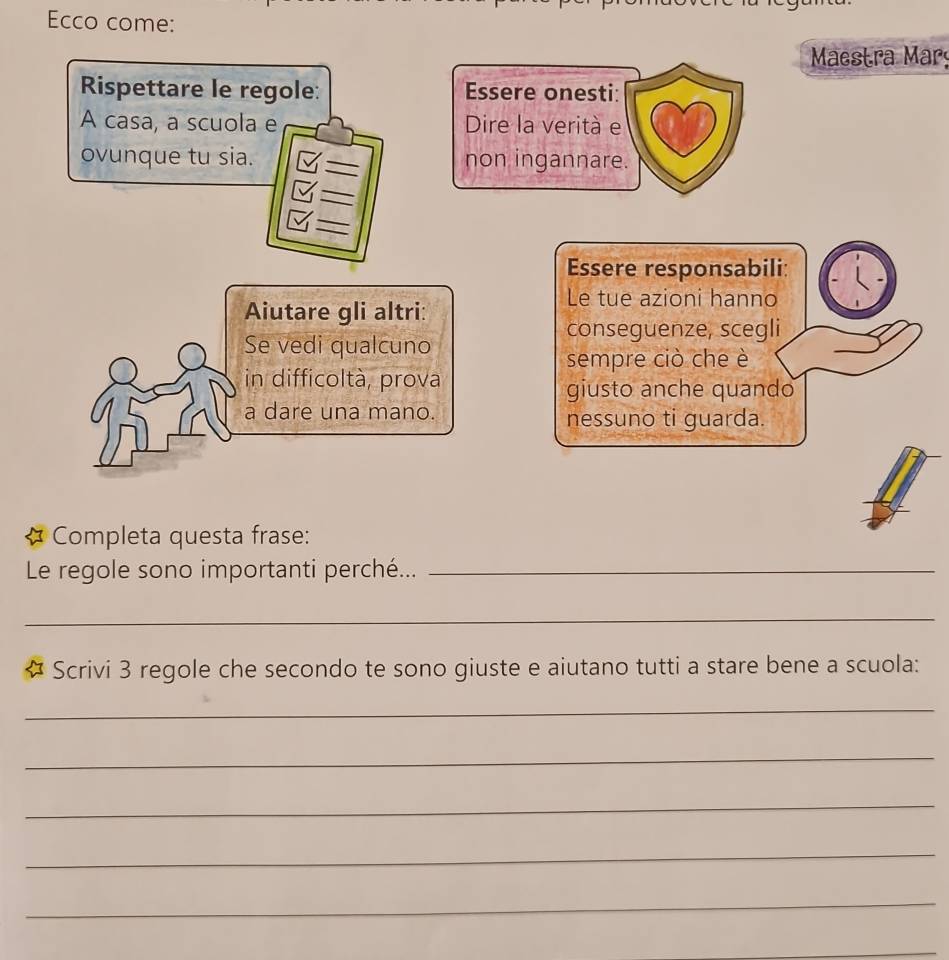 Ecco come:
Maestra Mary
Rispettare le regole:
A casa, a scuola e
ovunque tu sia.
Essere onesti:
Dire la verità e
non ingannare.
Aiutare gli altri:
Se vedi qualcuno
in difficoltà, prova
a dare una mano.
Essere responsabili:
Le tue azioni hanno
conseguenze, scegli
sempre ciò che è
giusto anche quando
nessuno ti guarda.
Completa questa frase:
Le regole sono importanti perché...
Scrivi 3 regole che secondo te sono giuste e aiutano tutti a stare bene a scuola: